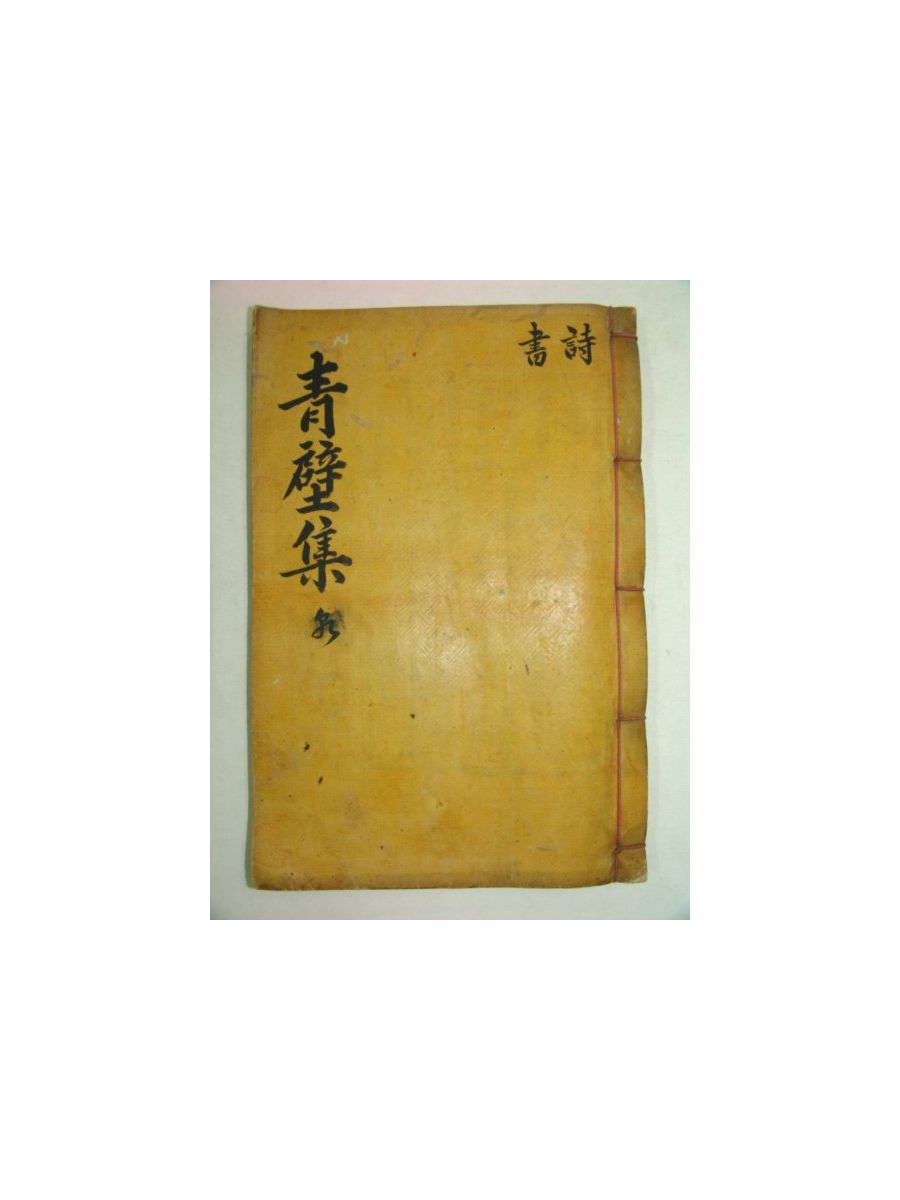 詩
書
青壁集